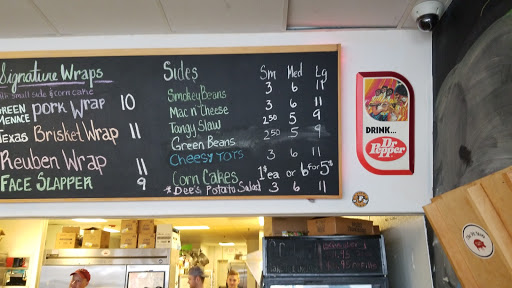 Signature Wraps
small side & corn cake
GREEN MENACE Pork Wrap 10
Texas Brisket Wrap 11
Reuben Wrap 11
Face Slapper 9
Sides Sm Med Lg
Smokey Beans 3 6 11
Mac n' Cheese 3 6 11
Tangy Slaw 2.50 5 9
Green Beans 2.50 5 9
Cheesy Tots 3 6 11
Corn Cakes 1 ea or 6 for 5
Dee's Potato Salad 3 6 11
DRINK...
Dr Pepper